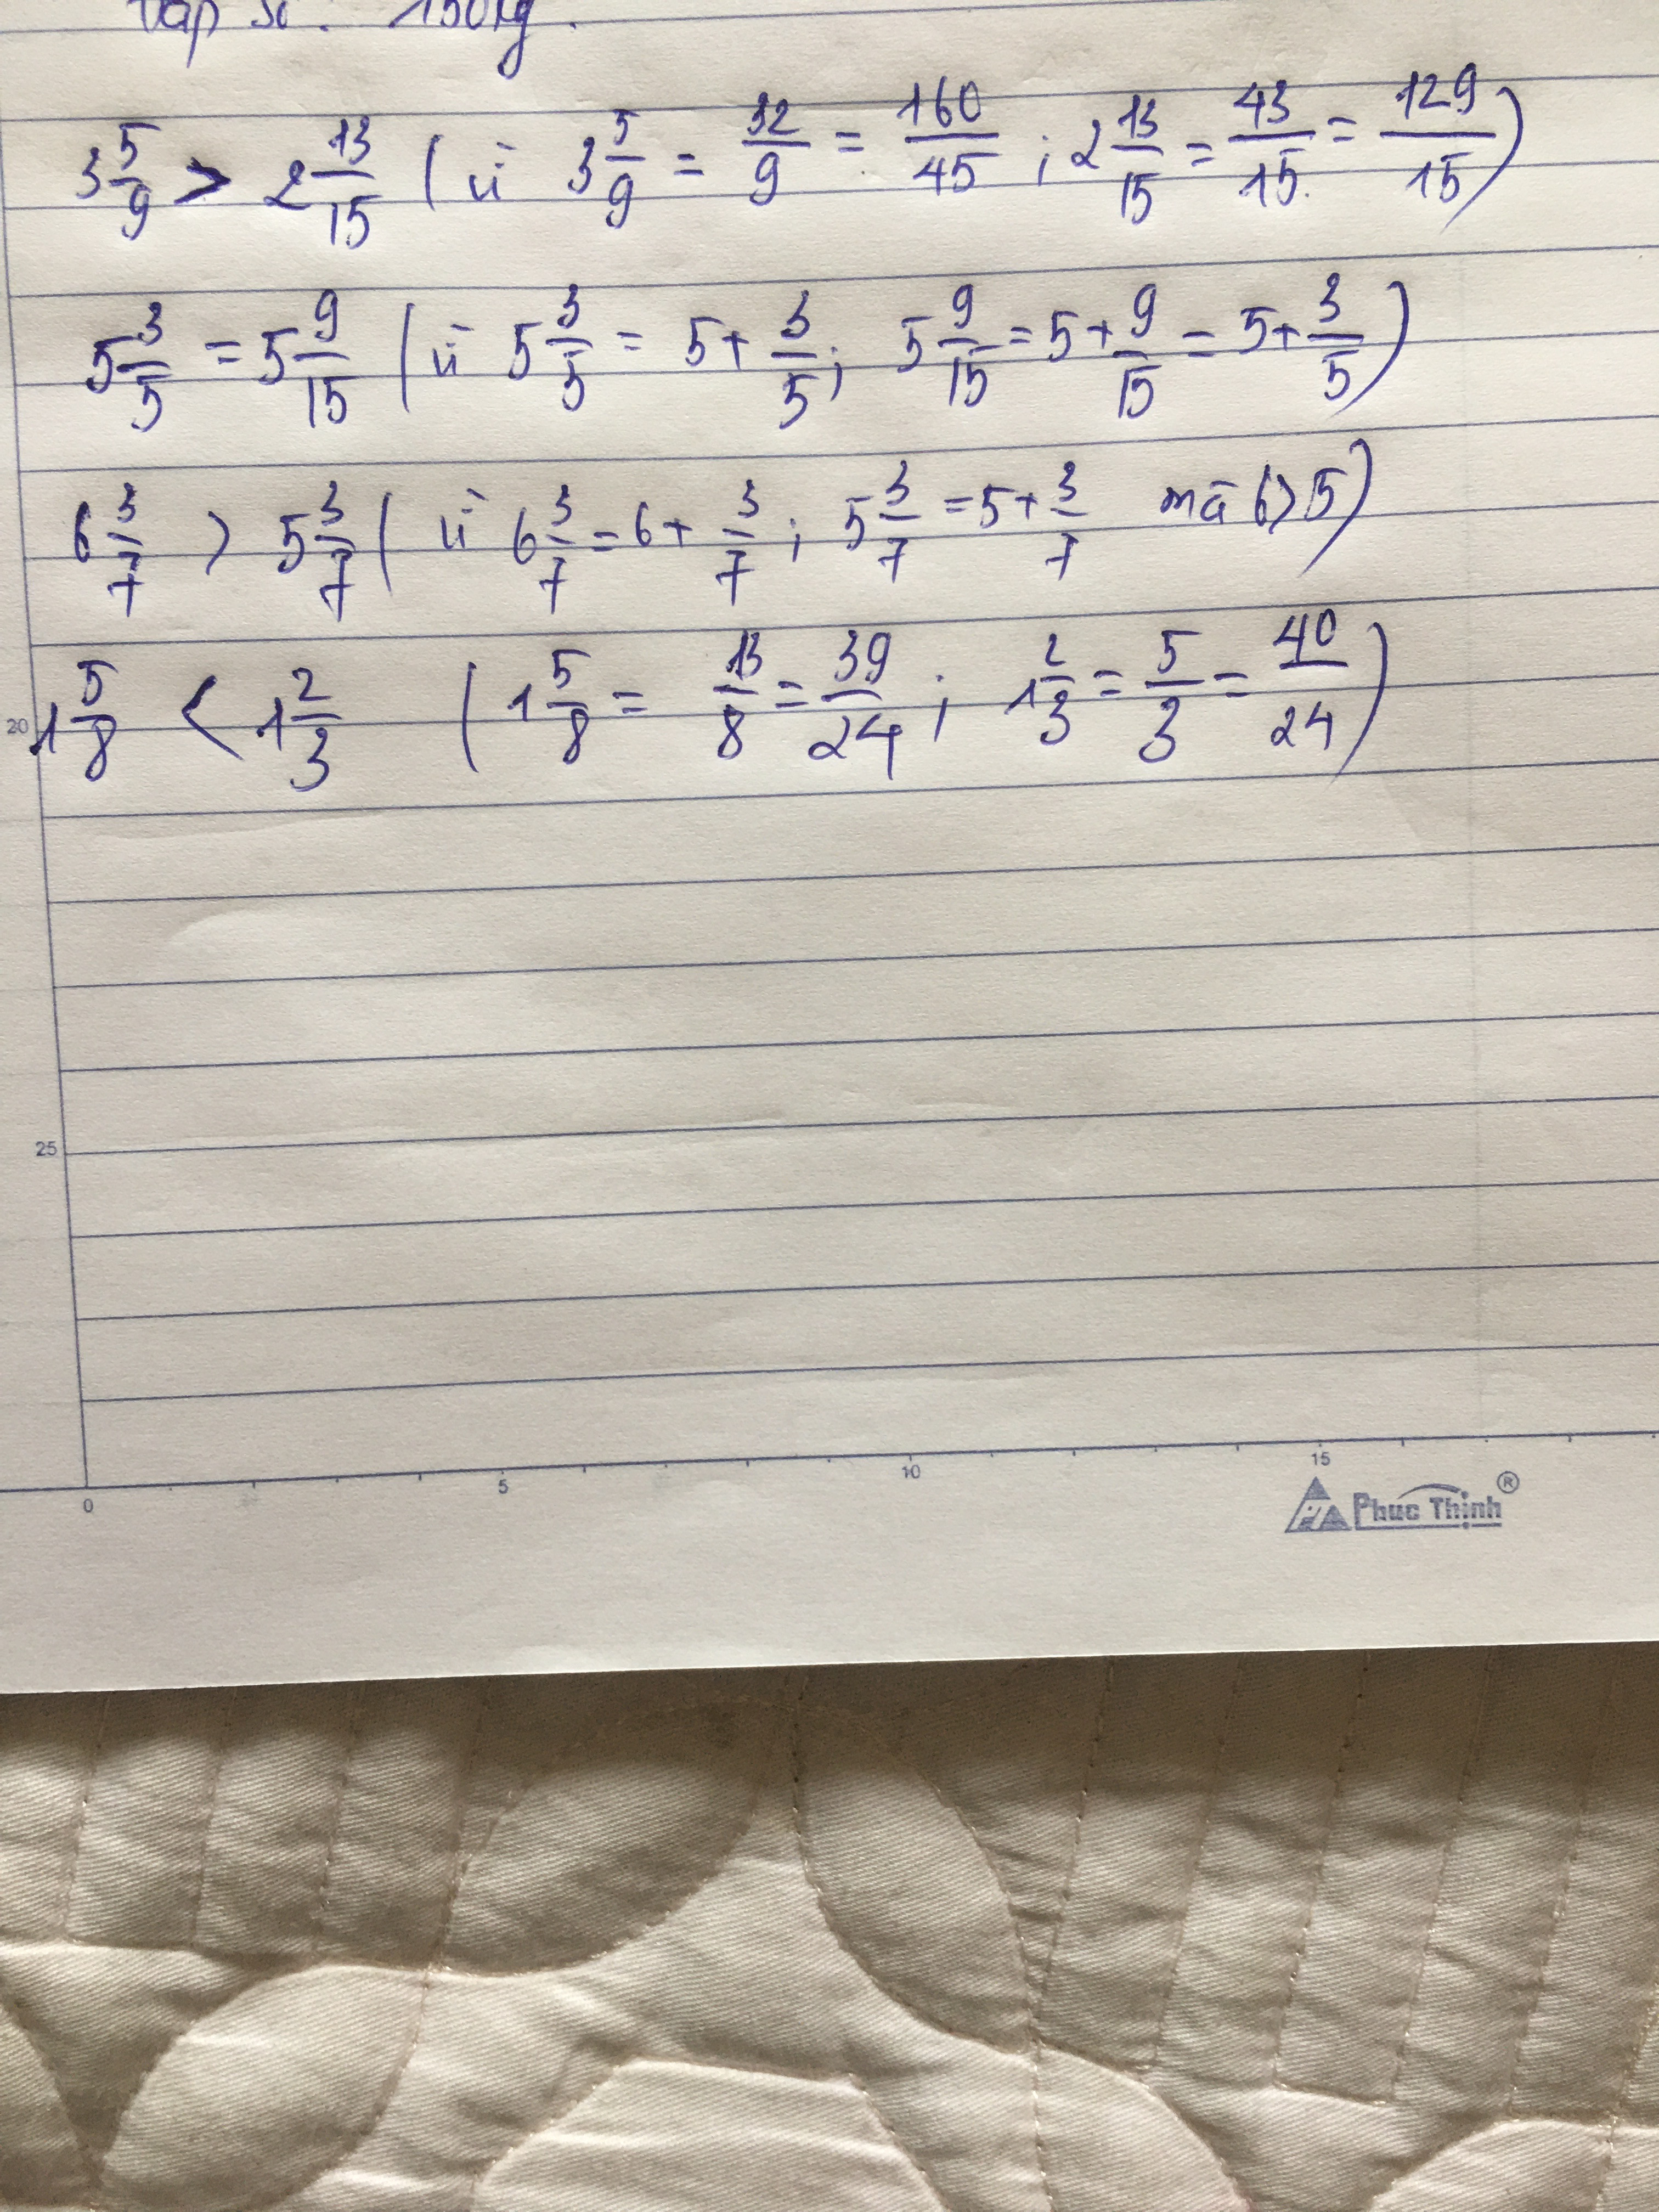 Đáp số: 150kg.
3 5/9 > 2 13/15 ( vì 3 5/9 = 32/9 = 160/45 ; 2 13/15 = 43/15 = 129/15 )
5 3/5 = 5 9/15 ( vì 5 3/5 = 5 + 3/5 ; 5 9/15 = 5 + 9/15 = 5 + 3/5 )
6 3/7 > 5 3/7 ( vì 6 3/7 = 6 + 3/7 ; 5 3/7 = 5 + 3/7 mà 6 > 5 )
20
1 5/8 < 1 2/3 ( 1 5/8 = 13/8 = 39/24 ; 1 2/3 = 5/3 = 40/24 )
25
0 5 10 15
Phuc Thịnh ®